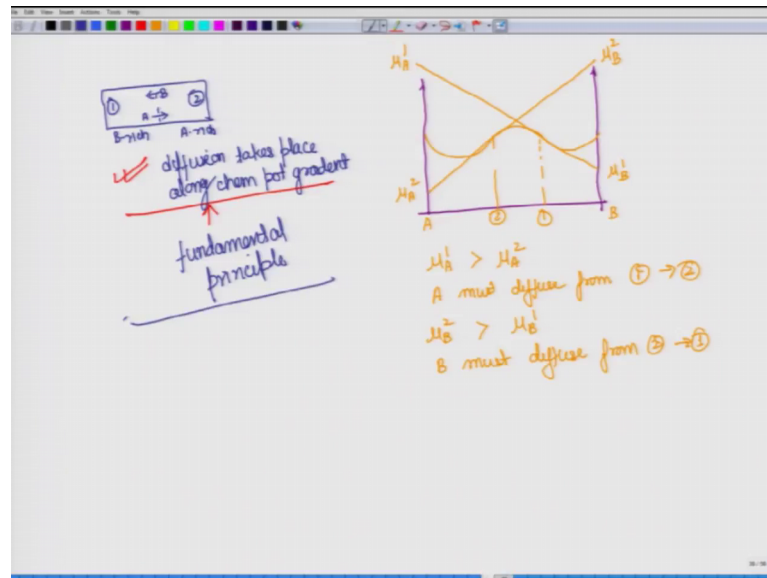 File Edit View Insert Actions Tools Help
① ←B ②
A→
B-rich A-rich
diffusion takes place
along chem pot gradient
fundamental
principle
μ_B^1 μ_B^2
μ_A^2 μ_B^1
A ② ① B
μ_A^1 > μ_A^2
A must diffuse from ① → ②
μ_B^2 > μ_B^1
B must diffuse from ② → ①